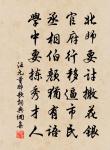 北師要討撒花銀
官府行移逼市民
丞相伯顏猶有語
學中要揀秀才人
汪元量醉歌